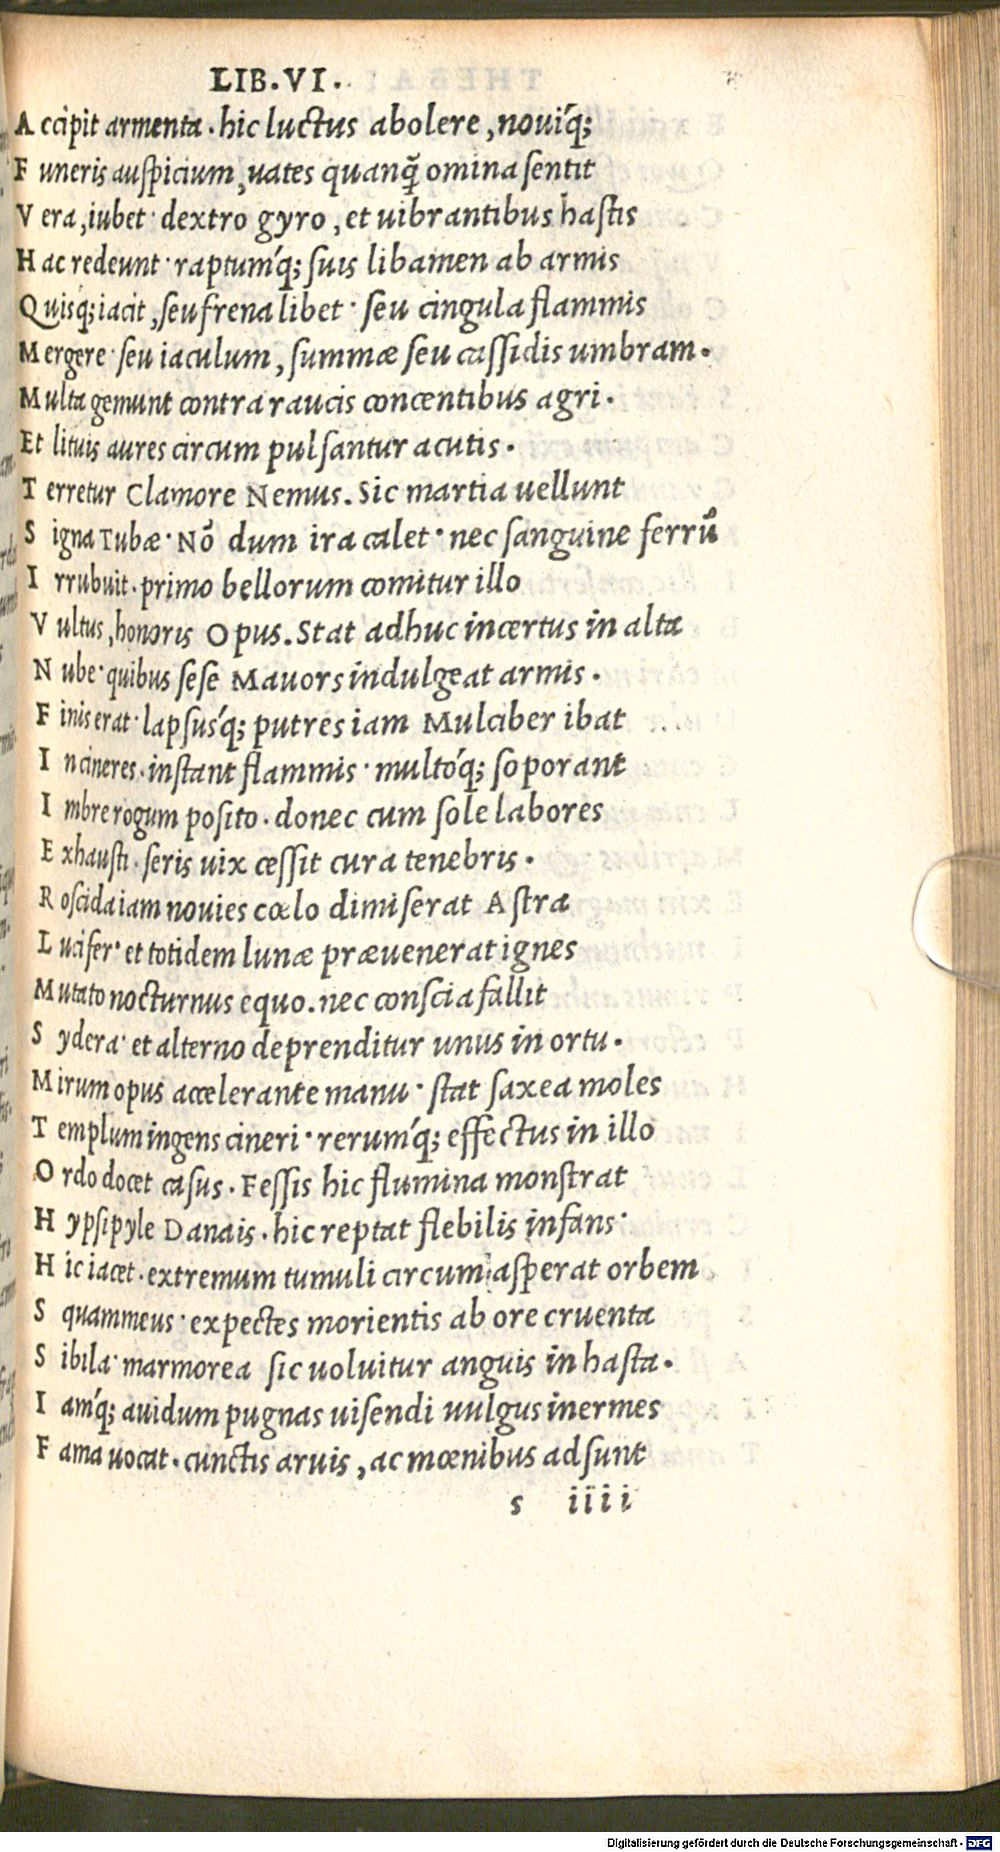 LIB.VI.
Accipit armenta. hic luctus abolere, noui'q;
Funeris auspicium, uates quanq̃ omina sentit
Vera, iubet· dextro gyro, et uibrantibus hastis
Hac redeunt· raptum'q; suis libamen ab armis
Quisq; iacit, seu frena libet· seu cingula flammis
Mergere· seu iaculum, summæ seu cassidis umbram.
Multa gemunt contra raucis concentibus agri.
Et lituis aures circum pulsantur acutis.
Terretur Clamore Nemus. Sic martia uellunt
Signa Tubæ· Nō dum ira calet· nec sanguine ferrū
Irrubuit. primo bellorum comitur illo
Vultus, honoris Opus. Stat adhuc incertus in alta
Nube· quibus sese Mauors indulgeat armis.
Finis erat· lapsus'q; putres iam Mulciber ibat
In cineres. instant flammis· multó'q; soporant
Imbre rogum posito. donec cum sole labores
Exhausti. seris uix cessit cura tenebris.
Roscida iam nouies cœlo dimiserat Astra
Lucifer· et totidem lunæ præuenerat ignes
Mutato nocturnus equo. nec conscia fallit
Sydera· et alterno deprenditur unus in ortu.
Mirum opus accelerante manu· stat saxea moles
Templum ingens cineri· rerum'q; effectus in illo
Ordo docet casus. Fessis hic flumina monstrat
Hypsipyle Danais. hic reptat flebilis infans·
Hic iacet. extremum tumuli circum asperat orbem
Squammeus· expectes morientis ab ore cruenta
Sibila· marmorea sic uoluitur anguis in hasta.
Iam'q; auidum pugnas uisendi uulgus inermes
Fama uocat. cunctis aruis, ac mœnibus adsunt
s iiii
Digitalisierung gefördert durch die Deutsche Forschungsgemeinschaft - DFG